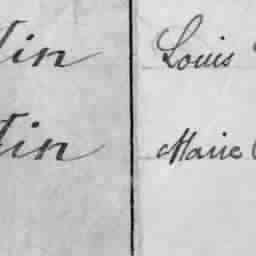 tin Louis
tin Marie